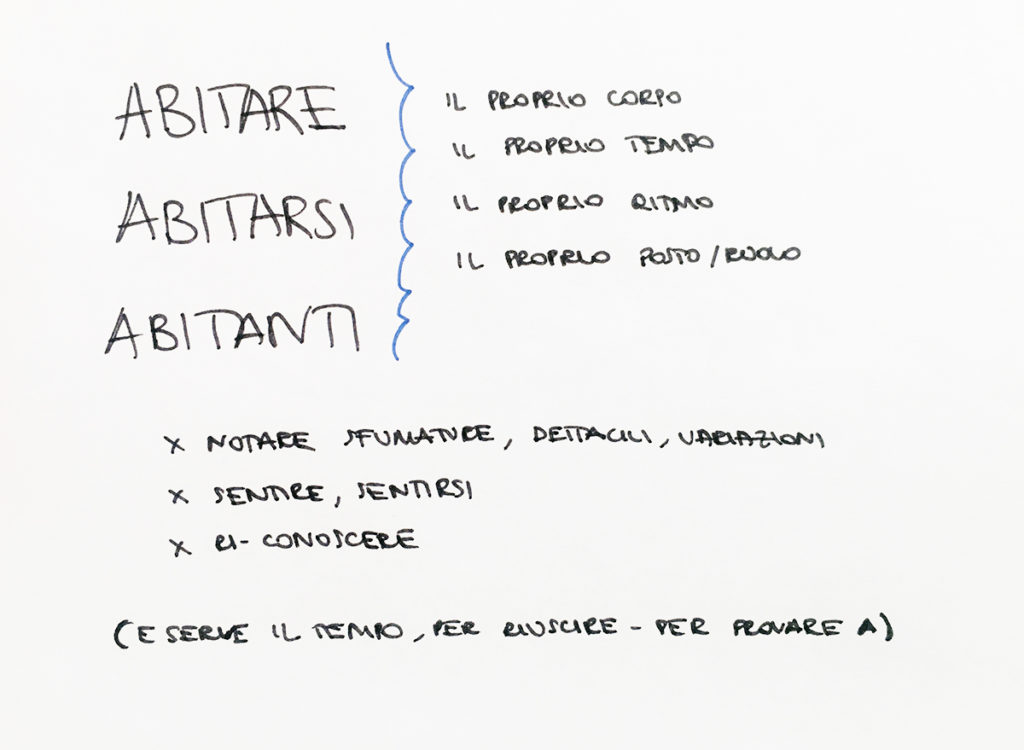 ABITARE
ABITARSI
ABITANTI
IL PROPRIO CORPO
IL PROPRIO TEMPO
IL PROPRIO RITMO
IL PROPRIO POSTO/RUOLO
X NOTARE SFUMATURE, DETTAGLI, VARIAZIONI
X SENTIRE, SENTIRSI
X RI-CONOSCERE
(E SERVE IL TEMPO, PER RIUSCIRE - PER PROVARE A)